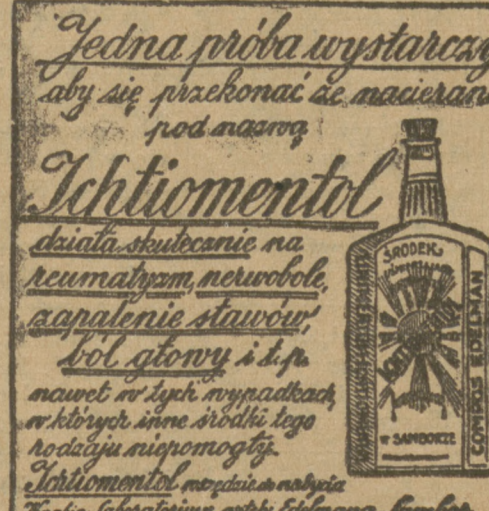 Jedna próba wystarczy
aby się przekonać że nacieran
pod nazwą
Ichtiomentol
działa skutecznie na
reumatyzm, nerwobole,
zapalenie stawów,
ból głowy i t.p.
nawet w tych wypadkach,
w których inne środki tego
rodzaju niepomogły.
Ichtiomentol wszędzie do nabycia
Edelmana, Sambor
ŚRODEK
W SAMBORZE
COMPOS EDELMAN